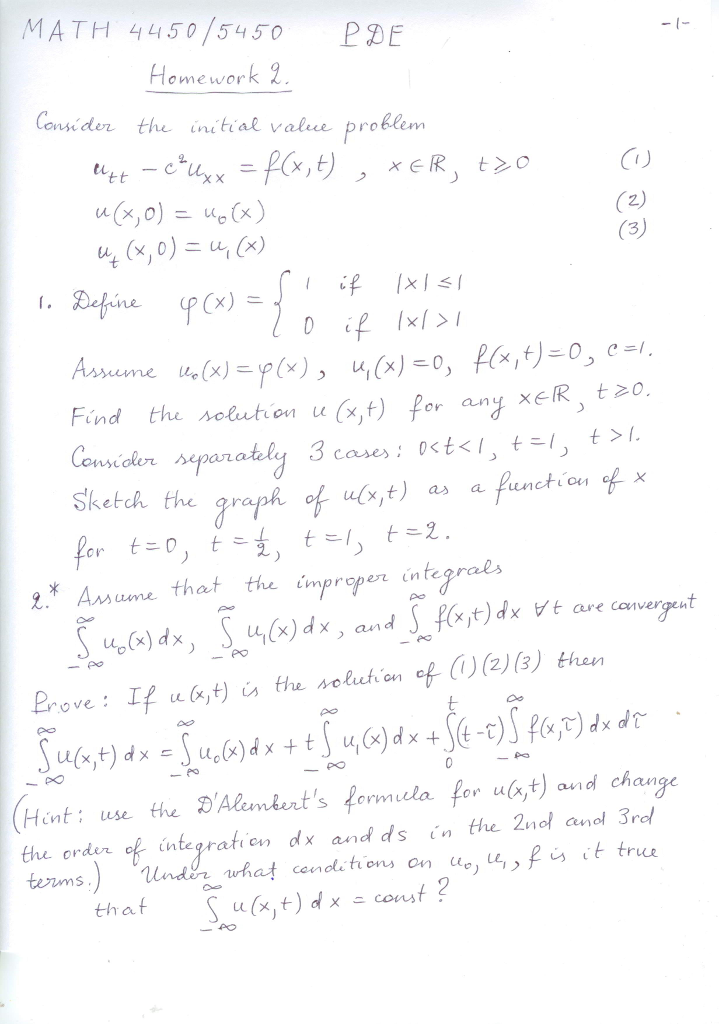 MATH 4450/5450 PDE -1-
Homework 2.
Consider the initial value problem
u_tt - c²u_xx = f(x,t), x ∈ ℝ, t ⩾ 0 (1)
u(x,0) = u₀(x) (2)
u_t(x,0) = u₁(x) (3)
1. Define φ(x) = { 1 if |x| ≤ 1
0 if |x| > 1
Assume u₀(x) = φ(x), u₁(x) = 0, f(x,t) = 0, c = 1.
Find the solution u(x,t) for any x ∈ ℝ, t ⩾ 0.
Consider separately 3 cases: 0<t<1, t=1, t>1.
Sketch the graph of u(x,t) as a function of x
for t=0, t=1/2, t=1, t=2.
2.* Assume that the improper integrals
∫_{-∞}^{∞} u₀(x)dx, ∫_{-∞}^{∞} u₁(x)dx, and ∫_{-∞}^{∞} f(x,t)dx ∀t are convergent
Prove: If u(x,t) is the solution of (1)(2)(3) then
∫_{-∞}^{∞} u(x,t)dx = ∫_{-∞}^{∞} u₀(x)dx + t∫_{-∞}^{∞} u₁(x)dx + ∫_{0}^{t}(t-τ)∫_{-∞}^{∞} f(x,τ)dx dτ.
(Hint: use the D'Alembert's formula for u(x,t) and change
the order of integration dx and ds in the 2nd and 3rd
terms.) Under what conditions on u₀, u₁, f is it true
that ∫_{-∞}^{∞} u(x,t)dx = const?